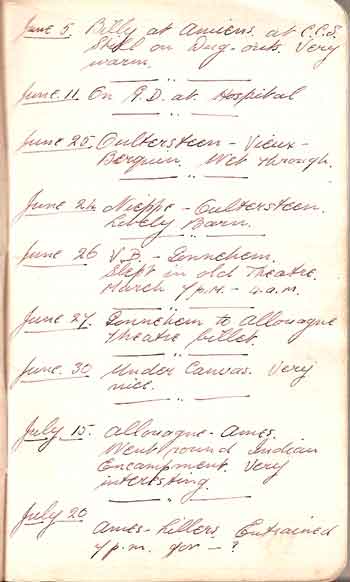 June 5. Billy at Amiens. at C.C.S.
Still on Dug-outs. Very
warm.
June 11. On R.D. at Hospital
June 25. Oultersteen - Vieux-
Berquin. Wet through.
June 24. Nieppe - Oultersteen.
Lovely Barn.
June 26 V.B. - Gonnehem.
Slept in old Theatre.
March 7 p.m. - 4 a.m.
June 27. Gonnehem to Allouagne
Theatre billet.
June. 30 Under Canvas. Very
nice.
July 15. Allouagne - Ames.
Went round Indian
Encampment. Very
interesting.
July 20
Ames - Lillers. Entrained
7 p.m. for - ?